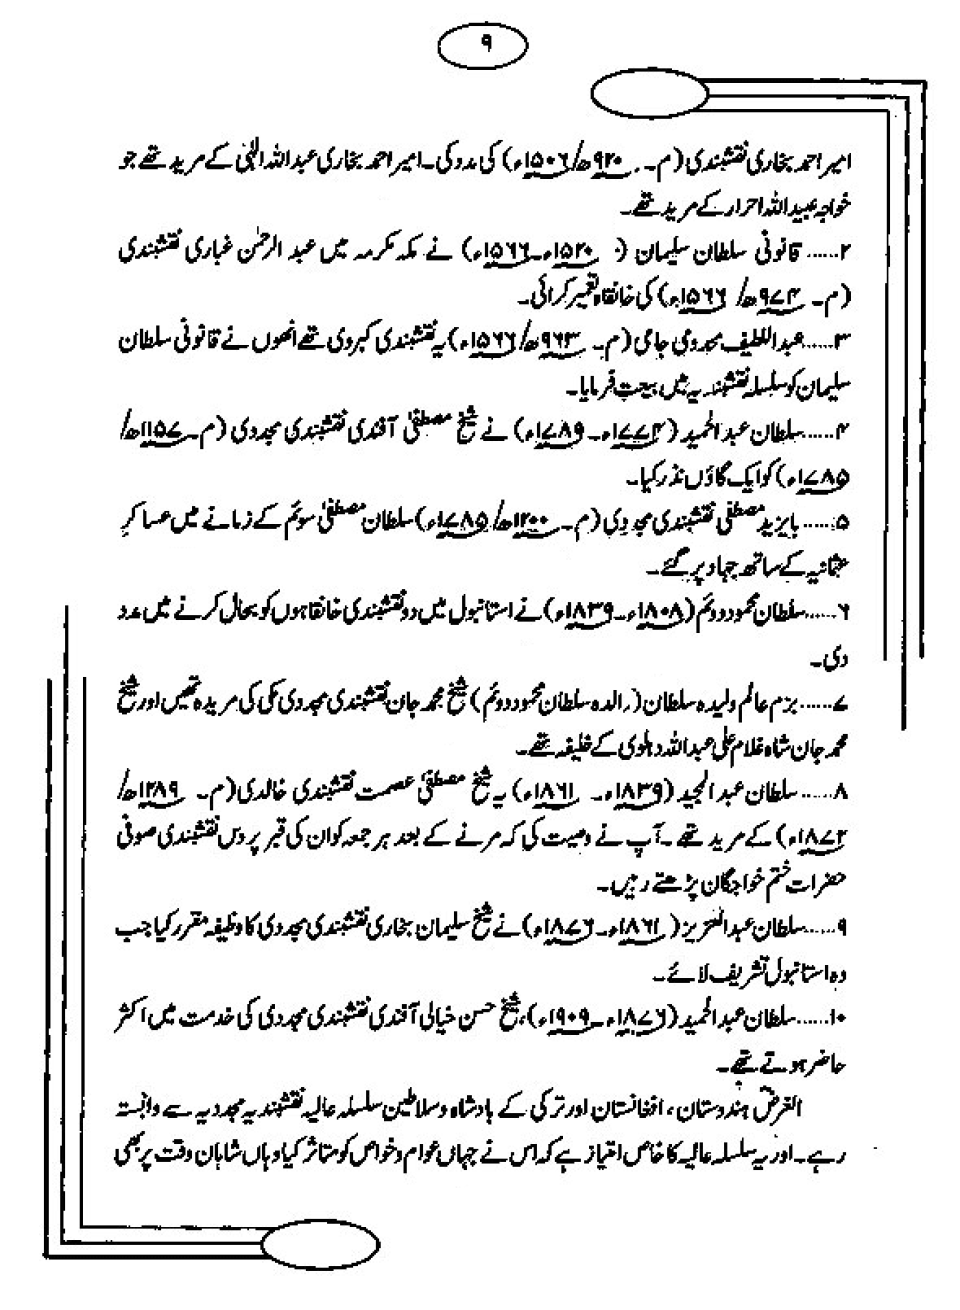 ۹
امیر احمد بخاری نقشبندی (م۔ ۹۲۰ھ/۱۵۰۶ء) کی مدد کی۔ امیر احمد بخاری عبداللہ الٰہی کے مرید تھے جو
خواجہ عبیداللہ احرار کے مرید تھے۔
۲...... قانونی سلطان سلیمان (۱۵۲۰ء۔۱۵۶۶ء) نے مکہ مکرمہ میں عبد الرحمٰن غباری نقشبندی
(م۔ ۹۷۴ھ/ ۱۵۶۶ء) کی خانقاہ تعمیر کرائی۔
۳...... عبداللطیف مخدومی جامی (م۔ ۹۶۳ھ/۱۵۶۶ء) یہ نقشبندی کبروی تھے انھوں نے قانونی سلطان
سلیمان کو سلسلہ نقشبندیہ میں بیعت فرمایا۔
۴...... سلطان عبدالحمید (۱۷۷۴ء۔ ۱۷۸۹ء) نے شیخ مصطفیٰ آفندی نقشبندی مجددی (م۔ ۱۱۵۷ھ/
۱۷۸۵ء) کو ایک گاؤں نذر کیا۔
۵...... بایزید مصطفٰی نقشبندی مجددی (م۔ ۱۲۰۰ھ/۱۷۸۵ء) سلطان مصطفیٰ سوئم کے زمانے میں عساکرِ
عثمانیہ کے ساتھ جہاد پر گئے۔
۶...... سلطان محمود دوئم (۱۸۰۸ء۔ ۱۸۳۹ء) نے استانبول میں دو نقشبندی خانقاہوں کو بحال کرنے میں مدد
دی۔
۷...... بزم عالم ولیدہ سلطان (والدہ سلطان محمود دوئم) شیخ محمد جان نقشبندی مجددی مکی کی مریدہ تھیں اور شیخ
محمد جان شاہ غلام علی عبداللہ دہلوی کے خلیفہ تھے۔
۸...... سلطان عبدالمجید (۱۸۳۹ء۔ ۱۸۶۱ء) یہ شیخ مصطفیٰ عصمت نقشبندی خالدی (م۔ ۱۲۸۹ھ/
۱۸۷۲ء) کے مرید تھے۔ آپ نے وصیت کی کہ مرنے کے بعد ہر جمعہ کو ان کی قبر پر دس نقشبندی صوفی
حضرات ختم خواجگان پڑھتے رہیں۔
۹...... سلطان عبدالعزیز (۱۸۶۱ء۔ ۱۸۷۶ء) نے شیخ سلیمان بخاری نقشبندی مجددی کا وظیفہ مقرر کیا جب
وہ استانبول تشریف لائے۔
۱۰...... سلطان عبدالحمید (۱۸۷۶ء۔ ۱۹۰۹ء)، شیخ حسن خیالی آفندی نقشبندی مجددی کی خدمت میں اکثر
حاضر ہوتے تھے۔
الغرض ہندوستان، افغانستان اور ترکی کے بادشاہ و سلاطین سلسلہ عالیہ نقشبندیہ مجددیہ سے وابستہ
رہے۔ اور یہ سلسلہ عالیہ کا خاص امتیاز ہے کہ اس نے جہاں عوام و خواص کو متاثر کیا وہاں شاہان وقت پر بھی